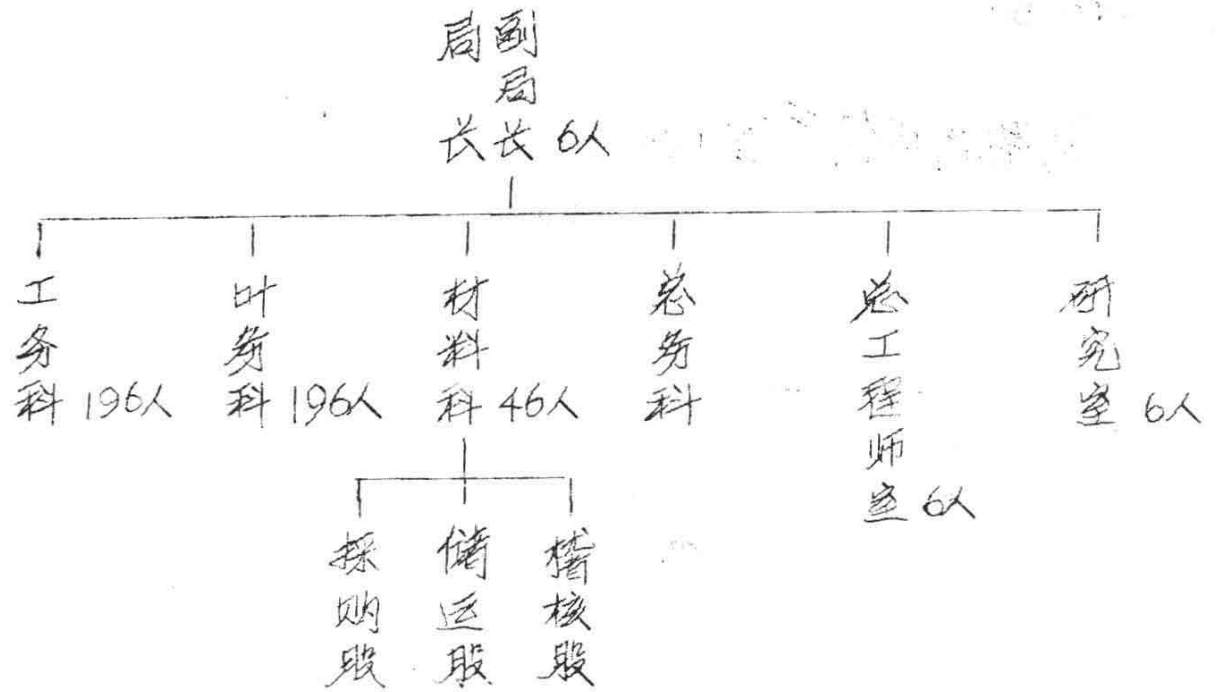 局长 副局长 6人
工务科 196人
叶务科 196人
材料科 46人
总务科
总工程师室 6人
研究室 6人
採购股
储运股
稽核股